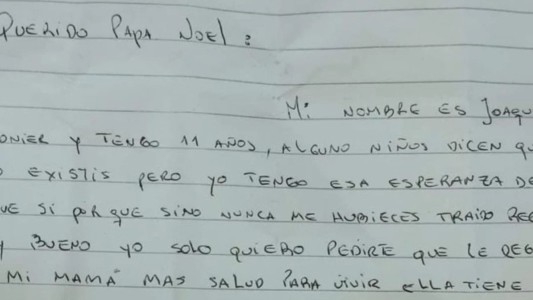 QUERIDO PAPA NOEL:
Mi NOMBRE ES JOAQU
ONIER Y TENGO 11 AÑOS, ALGUNO NIÑOS DICEN QU
O EXISTIS PERO YO TENGO ESA ESPERANZA DE
UE SI PORQUE SINO NUNCA ME HUBIECES TRAIDO REG
Y BUENO YO SOLO QUIERO PEDIRTE QUE LE REG
MI MAMÁ MAS SALUD PARA VIVIR ELLA TIENE